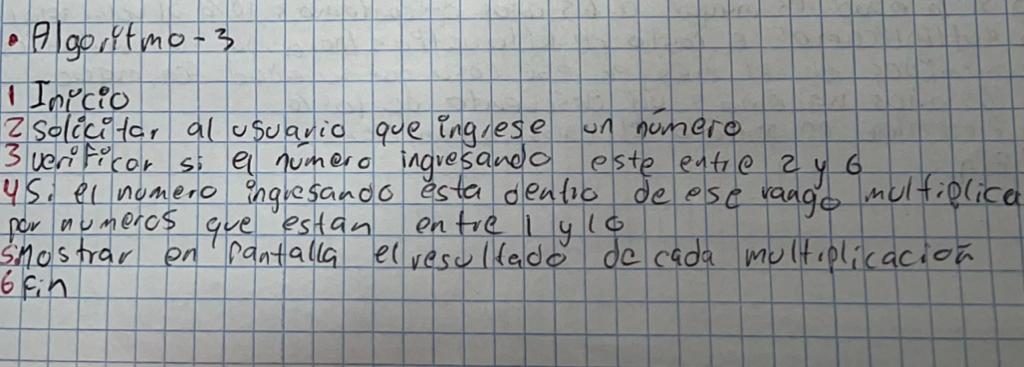 • Algoritmo-3
1 Inicio
2 solicitar al usuario que ingrese un número
3 verificar si el número ingresando este entre 2 y 6
4 Si el numero ingresando esta dentro de ese rango multiplicar
por numeros que estan entre 1 y 10
5 mostrar en Pantalla el resultado de cada multiplicación
6 fin